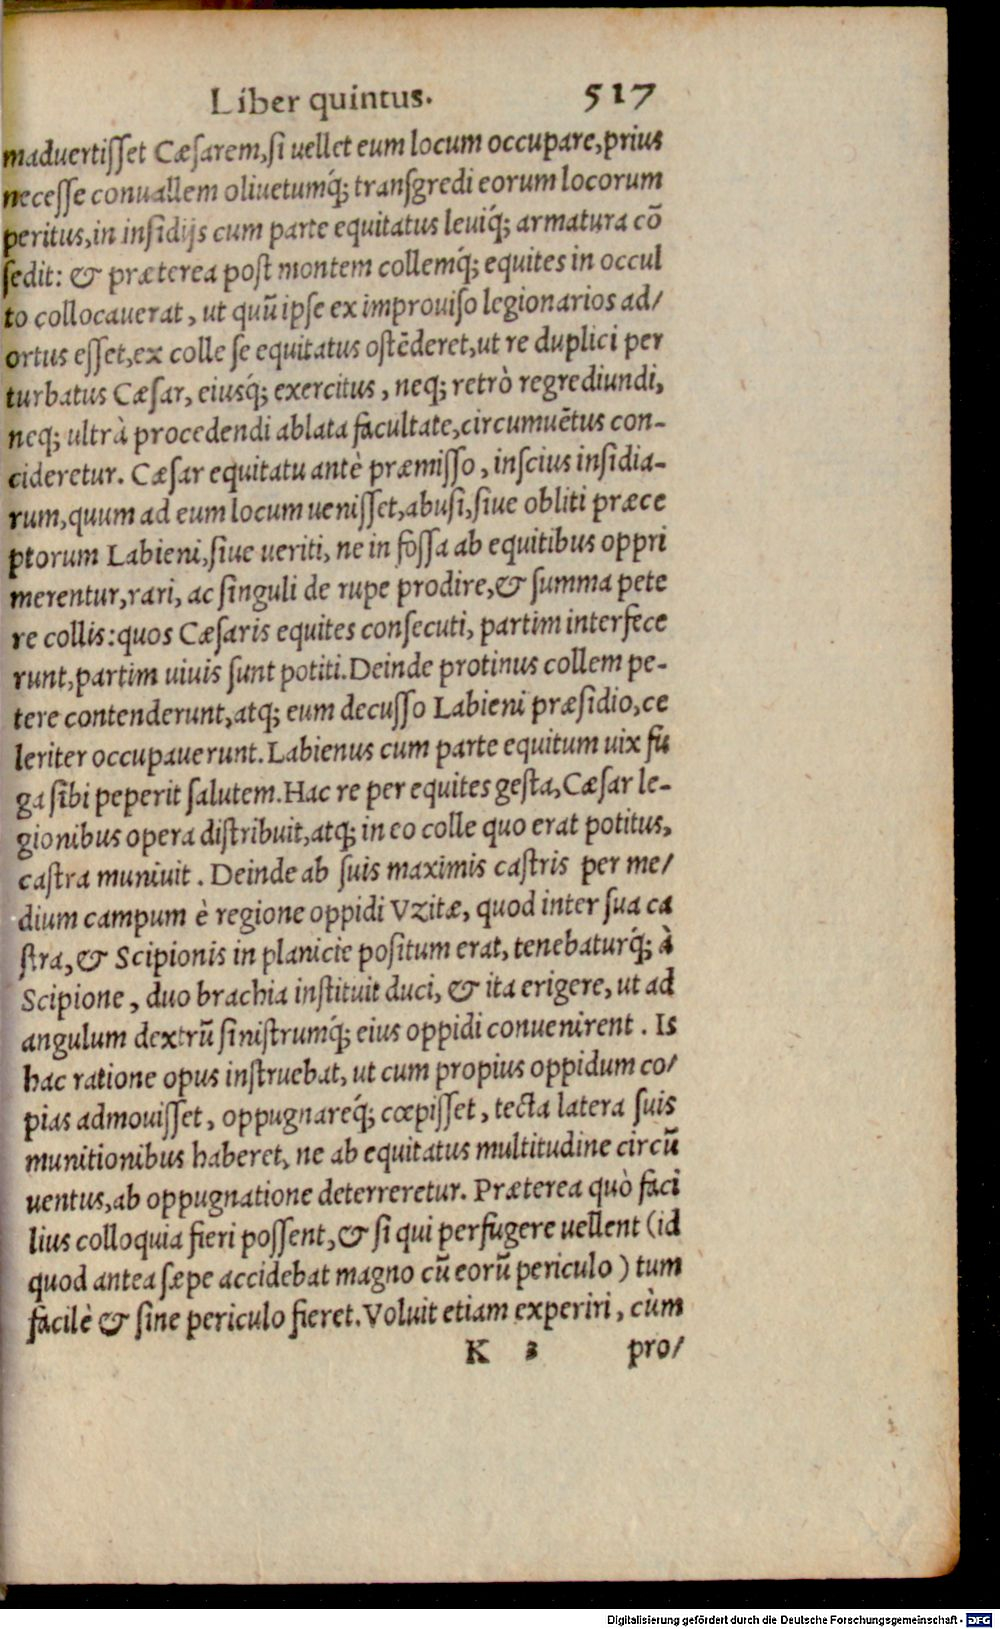 Liber quintus. 517
maduertisſet Cæſarem, ſi uellet eum locum occupare, prius
neceſſe conuallem oliuetumq́; tranſgredi eorum locorum
peritus, in inſidijs cum parte equitatus leuiq́; armatura cō
ſedit: & præterea poſt montem collemq́; equites in occul
to collocauerat, ut quū ipſe ex improuiſo legionarios ad/
ortus eſſet, ex colle ſe equitatus oſtēderet, ut re duplici per
turbatus Cæſar, eiusq́; exercitus, neq; retrò regrediundi,
neq; ultrà procedendi ablata facultate, circumuētus con-
cideretur. Cæſar equitatu antè præmiſſo, inſcius inſidia-
rum, quum ad eum locum ueniſſet, abuſi, ſiue obliti præce
ptorum Labieni, ſiue ueriti, ne in foſſa ab equitibus oppri
merentur, rari, ac ſinguli de rupe prodire, & ſumma pete
re collis: quos Cæſaris equites conſecuti, partim interfece
runt, partim uiuis ſunt potiti. Deinde protinus collem pe-
tere contenderunt, atq; eum decuſſo Labieni præſidio, ce
leriter occupauerunt. Labienus cum parte equitum uix fu
ga ſibi peperit ſalutem. Hac re per equites geſta, Cæſar le-
gionibus opera diſtribuit, atq; in eo colle quo erat potitus,
caſtra muniuit. Deinde ab ſuis maximis caſtris per me/
dium campum è regione oppidi Vzitæ, quod inter ſua ca
ſtra, & Scipionis in planicie poſitum erat, tenebaturq́; à
Scipione, duo brachia inſtituit duci, & ita erigere, ut ad
angulum dextrū ſiniſtrumq́; eius oppidi conuenirent. Is
hac ratione opus inſtruebat, ut cum propius oppidum co/
pias admouiſſet, oppugnareq́; cœpiſſet, tecta latera ſuis
munitionibus haberet, ne ab equitatus multitudine circū
uentus, ab oppugnatione deterreretur. Præterea quò faci
lius colloquia fieri poſſent, & ſi qui perfugere uellent (id
quod antea ſæpe accidebat magno cū eorū periculo) tum
facilè & ſine periculo fieret. Voluit etiam experiri, cùm
K 3 pro/
Digitalisierung gefördert durch die Deutsche Forschungsgemeinschaft - DFG